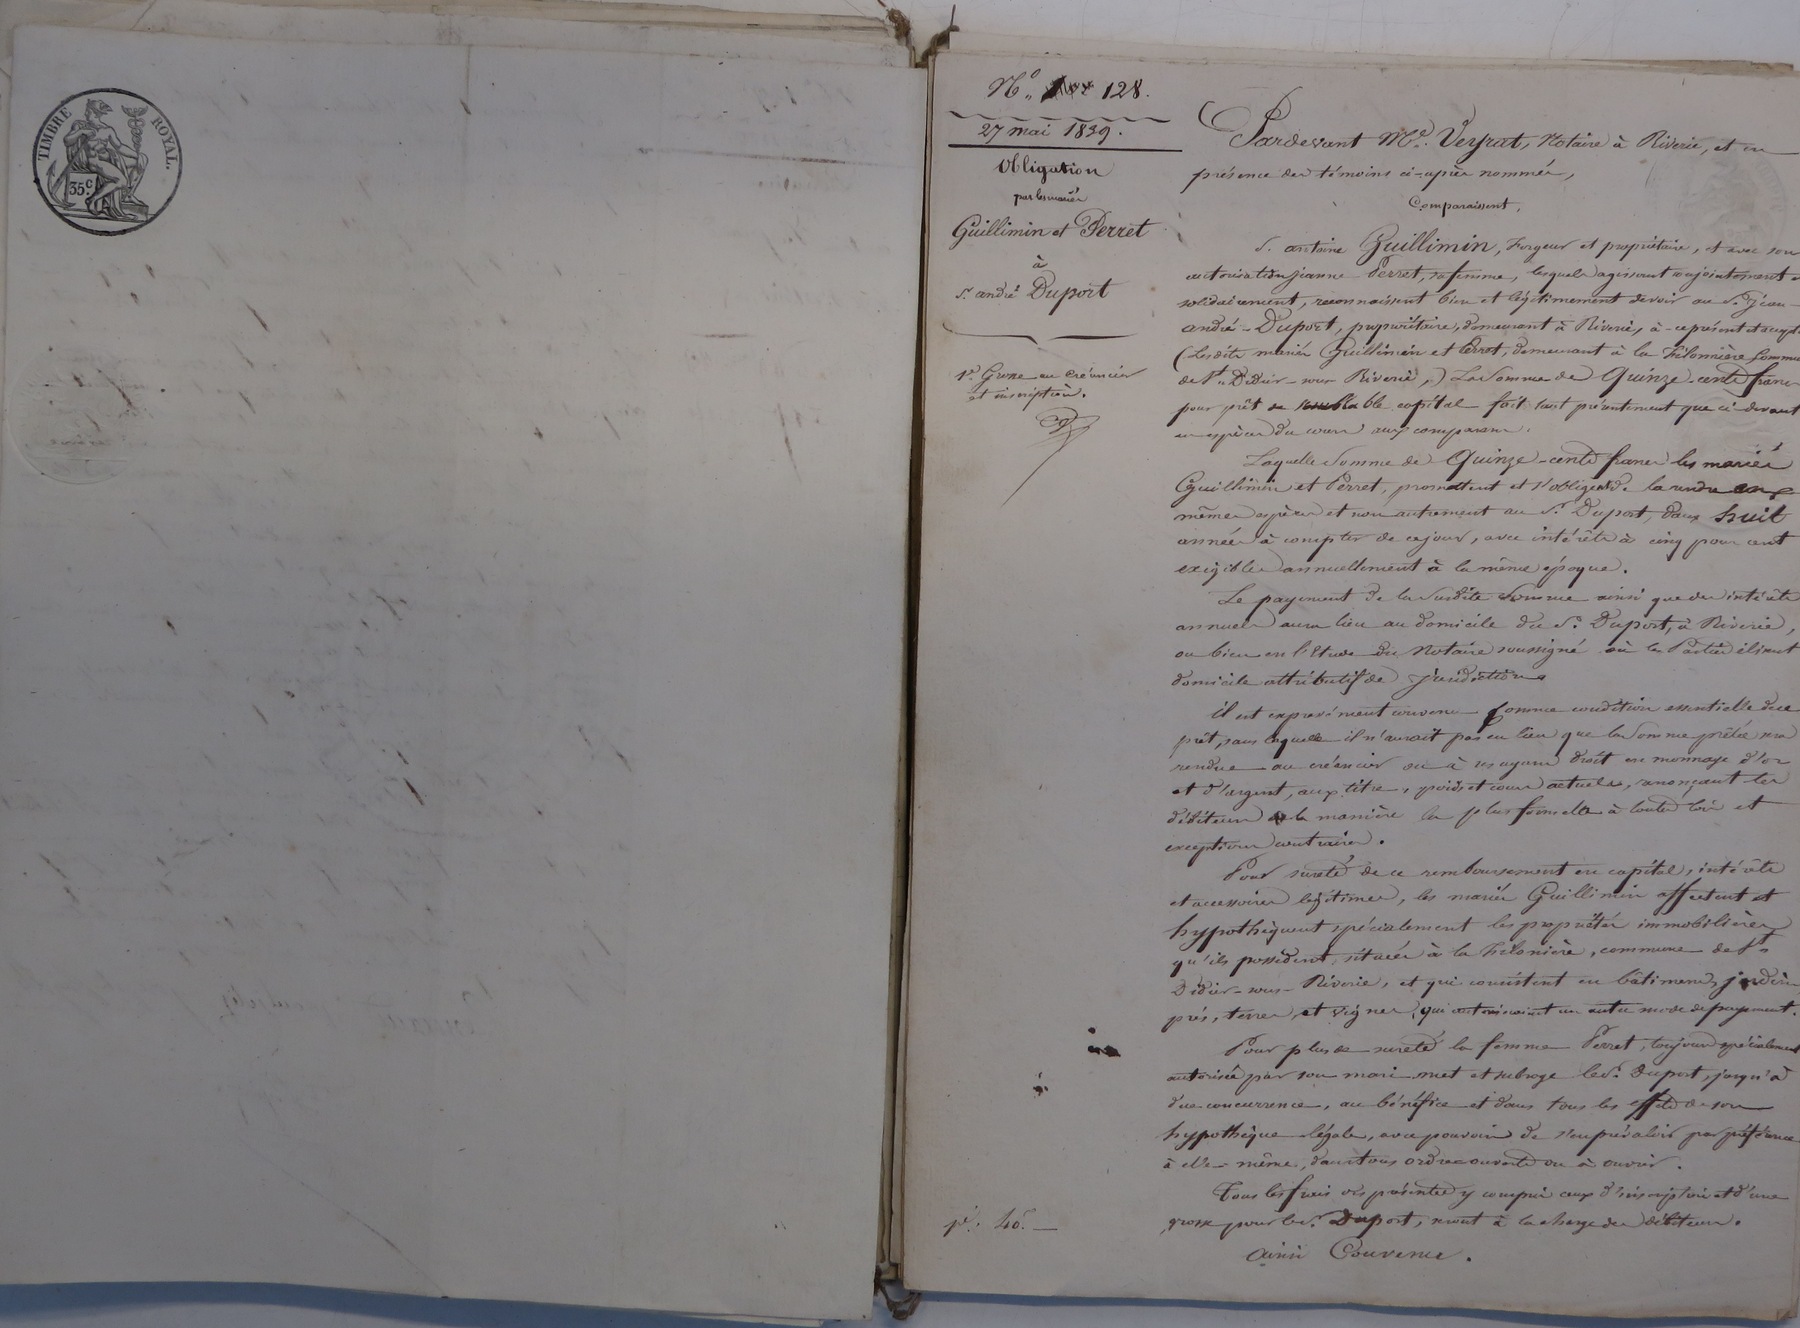 TIMBRE ROYAL.
35c.
No. 128.
27 mai 1839.
Obligation
par les mariés
Guillimin et Perret
à
Sr. andré Duport
1re. Grosse au créancier
et inscription.
pé. 40.c —
Pardevant Me. Veyrat, Notaire à Riverie, et en
présence des témoins ci-après nommés,
Comparaissent,
S. antoine Guillimin, Forgeur et propriétaire, et avec son
autorisation jeanne Perret, sa femme, lesquels agissant conjointement et
solidairement, reconnaissent bien et légitimement devoir au Sr. Jean-
andré Duport, propriétaire, demeurant à Riverie, à ce présent et accept.
(Lesdits mariés Guillimin et Perret, demeurant à la Filonnière Commune
de St. Didier-sous-Riverie,) La Somme de Quinze-cents francs
pour prêt de semblable capital fait tant présentement que ci-devant
en espèces du cours aux comparans.
Laquelle Somme de Quinze-cents francs les mariés
Guillimin et Perret, promettent et s'obligent de la rendre en
mêmes espèces et non autrement au Sr. Duport, dans huit
années à compter de ce jour, avec intérêts à cinq pour cent
exigibles annuellement à la même époque.
Le payement de la Susdite Somme ainsi que des intérêts
annuels aura lieu au domicile du Sr. Duport, à Riverie,
ou bien en l'Etude du Notaire soussigné où les Parties élisent
domicile attributif de juridiction.
il est expressément convenu Comme condition essentielle de ce
prêt, sans laquelle il n'aurait pas eu lieu que la Somme prêtée sera
rendue au créancier ou à ses ayans droit en monnaye d'or
et d'argent, aux titre, poids et cours actuels, renonçant les
débiteurs de la manière la plus formelle à toutes lois et
exceptions contraires.
Pour sureté de ce remboursement en capital, intérêts
et accessoires légitimes, les mariés Guillimin affectent et
hypothèquent spécialement les propriétés immobilières
qu'ils possèdent, situées à la Filonière, commune de St.
Didier-sous-Riverie, et qui consistent en bâtimens, jardin,
prés, terres, et vignes, qui autorisaient un autre mode de payement.
Pour plus de sureté la femme Perret, toujours spécialement
autorisée par son mari met et subroge le Sr. Duport, jusqu'à
due concurrence, au bénéfice et dans tous les effets de son
hypothèque légale, avec pouvoir de s'en prévaloir par préférence
à elle-même, dans tous ordres ouverts ou à ouvrir.
Tous les frais des présentes y compris ceux d'inscription et d'une
grosse pour le Sr. Duport, seront à la charge des débiteurs.
ainsi Convenu.